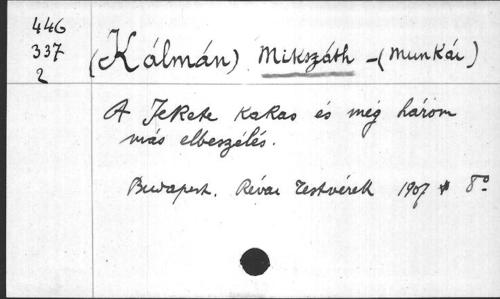 446
337
2
(Kálmán) Mikszáth – (Munkái)
A Fekete kakas és még három
más elbeszélés.
Budapest. Révai Testvérek 1907 8°